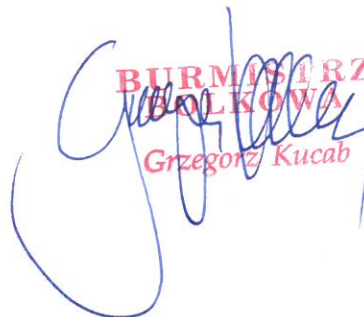 BURMISTRZ
BOLKOWA
Grzegorz Kucab